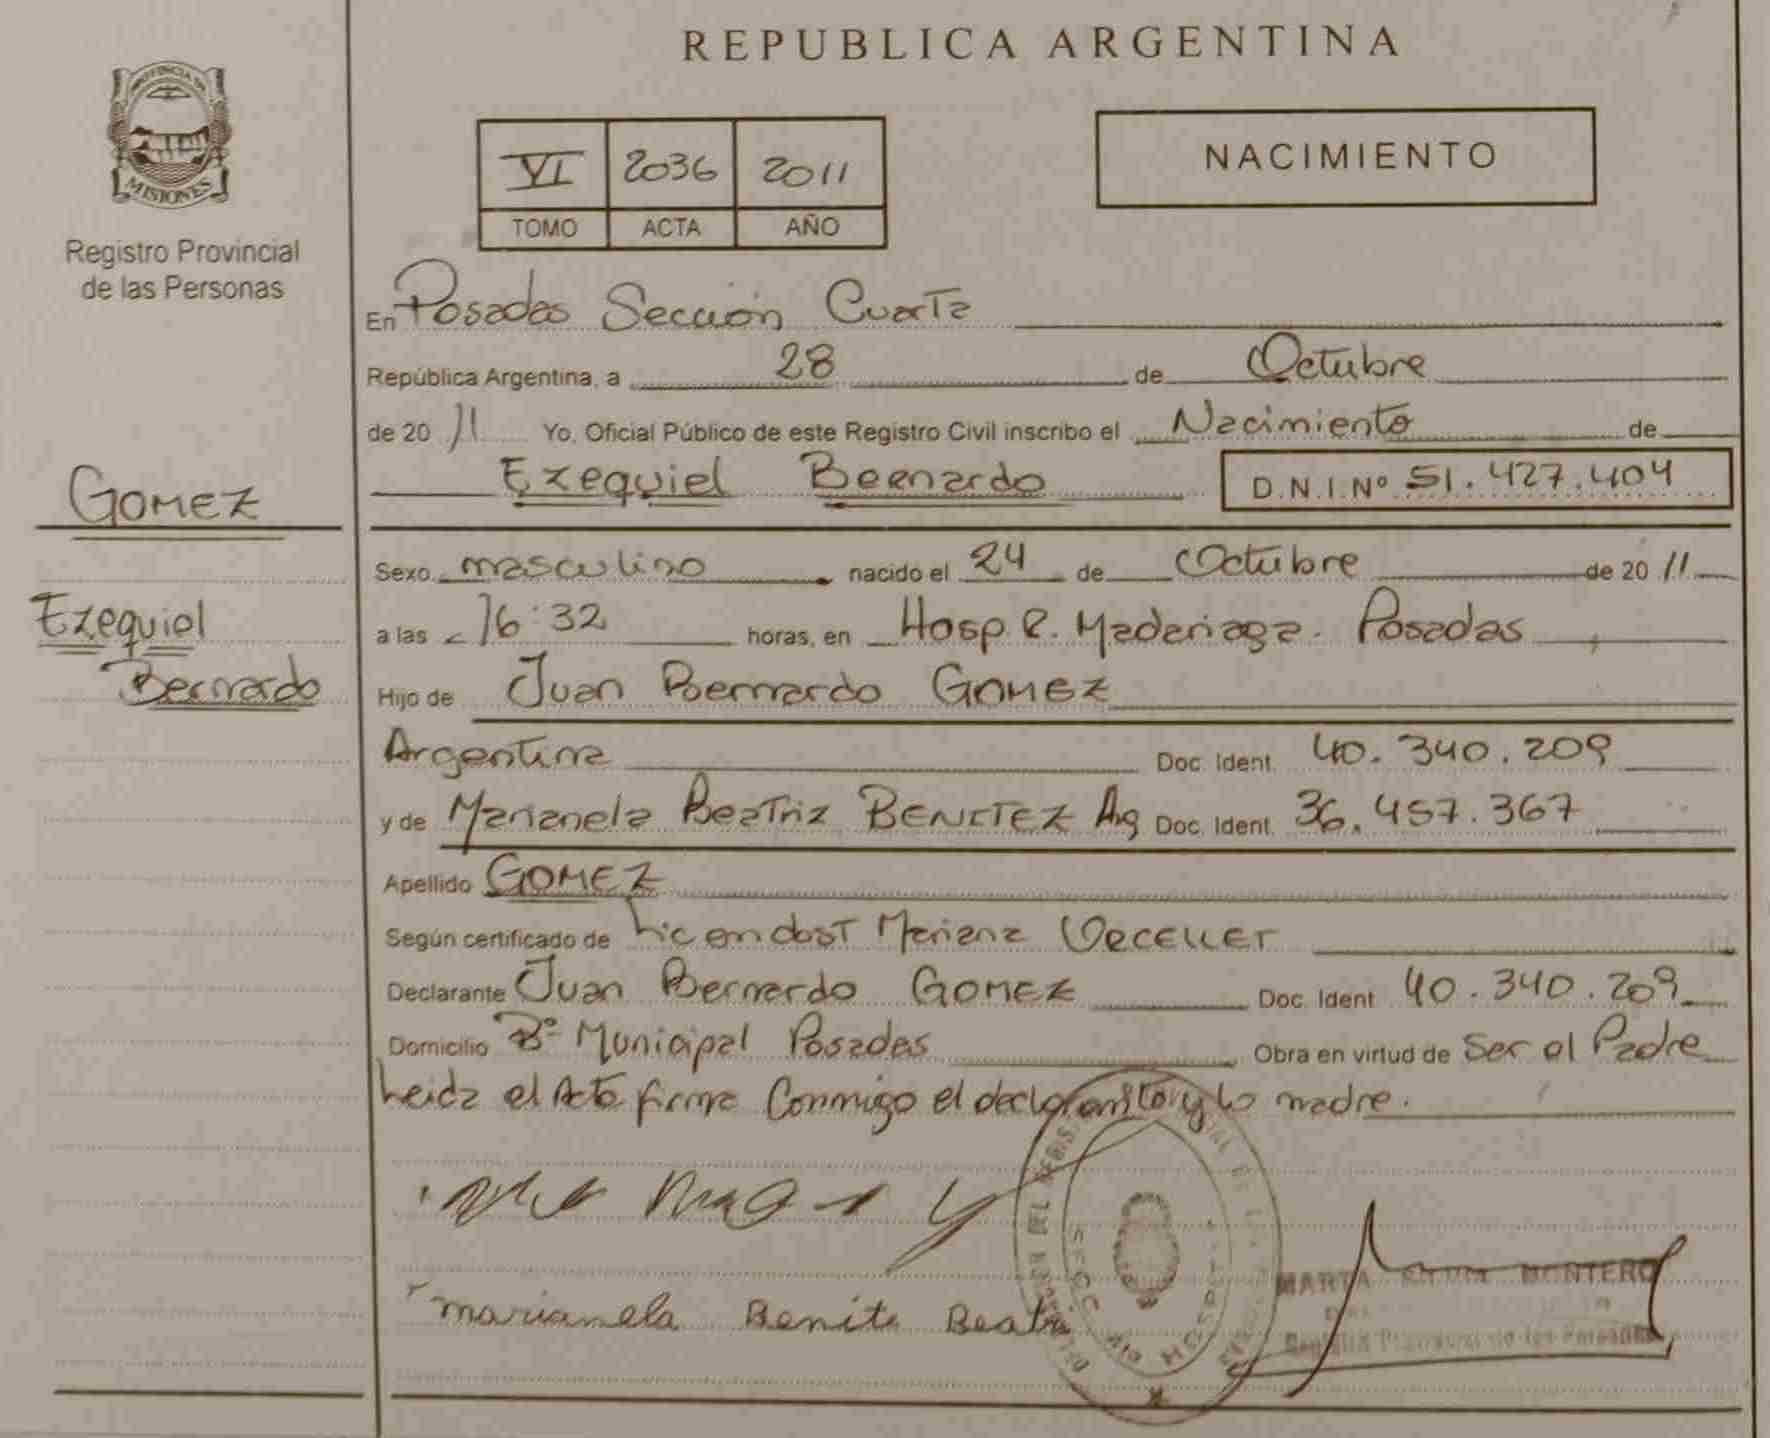 REPUBLICA ARGENTINA
PROVINCIA DE
MISIONES
Registro Provincial
de las Personas
VI 2036 2011
TOMO ACTA AÑO
NACIMIENTO
En Posadas Sección Cuarta
República Argentina, a 28 de Octubre
de 2011 Yo, Oficial Público de este Registro Civil inscribo el Nacimiento de
Ezequiel Bernardo D.N.I.Nº 51.427.404
GOMEZ
Ezequiel
Bernardo
Sexo masculino nacido el 24 de Octubre de 2011
a las 16:32 horas, en Hosp. R. Madariaga. Posadas
Hijo de Juan Bernardo GOMEZ
Argentina Doc. Ident. 40.340.209
y de Marianela Beatriz BENITEZ Arg Doc. Ident. 36.457.367
Apellido GOMEZ
Según certificado de Lic en obst Mariana
Declarante Juan Bernardo GOMEZ Doc. Ident. 40.340.209
Domicilio Bº Municipal Posadas Obra en virtud de Ser el Padre
Leida el Acta firma Conmigo el declarante y la madre.
marianela Benite Beatri
MARTA MONTERO
Registro Provincial de las Personas